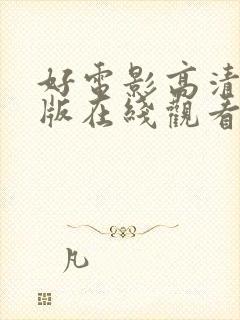 好電影高清
版在綫觀看
凡